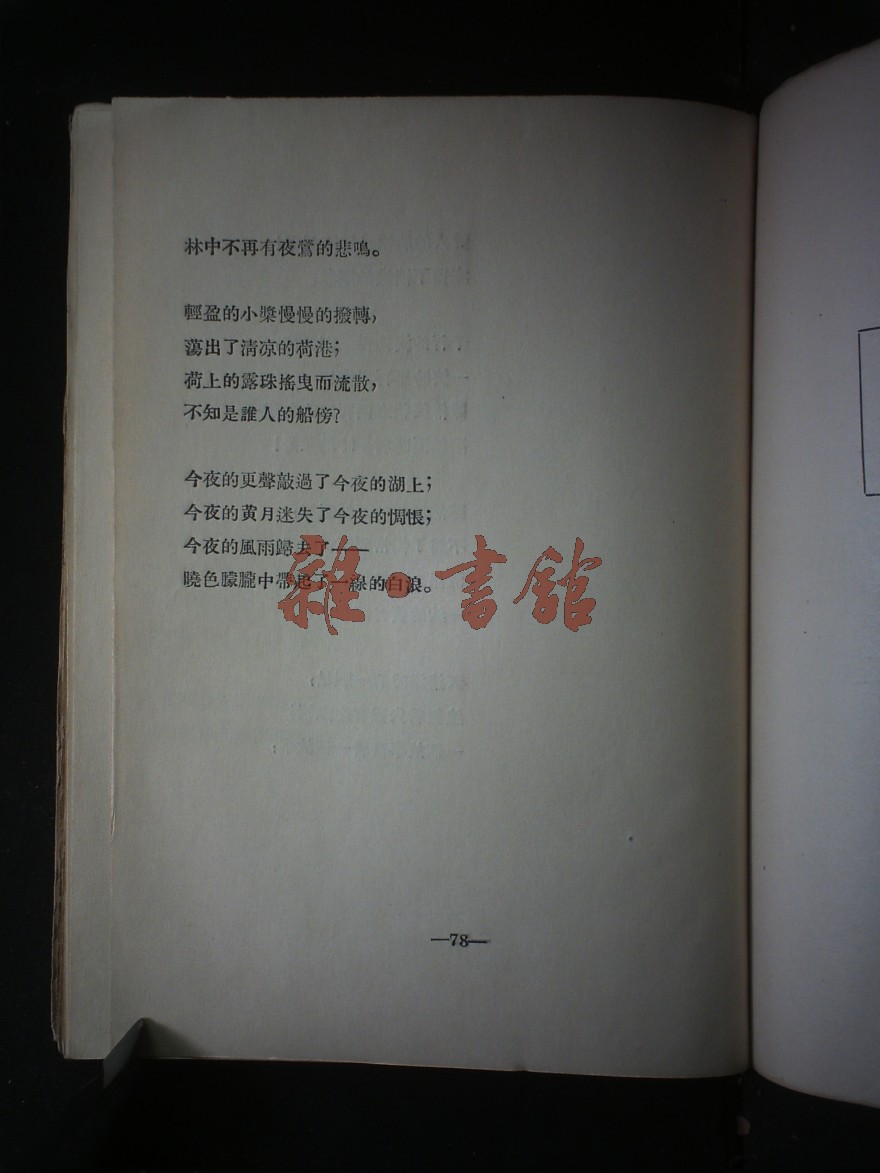 林中不再有夜鶯的悲鳴。
輕盈的小槳慢慢的撥轉，
蕩出了淸凉的荷港；
荷上的露珠搖曳而流散，
不知是誰人的船傍？
今夜的更聲敲過了今夜的湖上；
今夜的黄月迷失了今夜的惆悵；
今夜的風雨歸去了——
曉色朦朧中帶起了一綠的白浪。
雜·書館
—78—